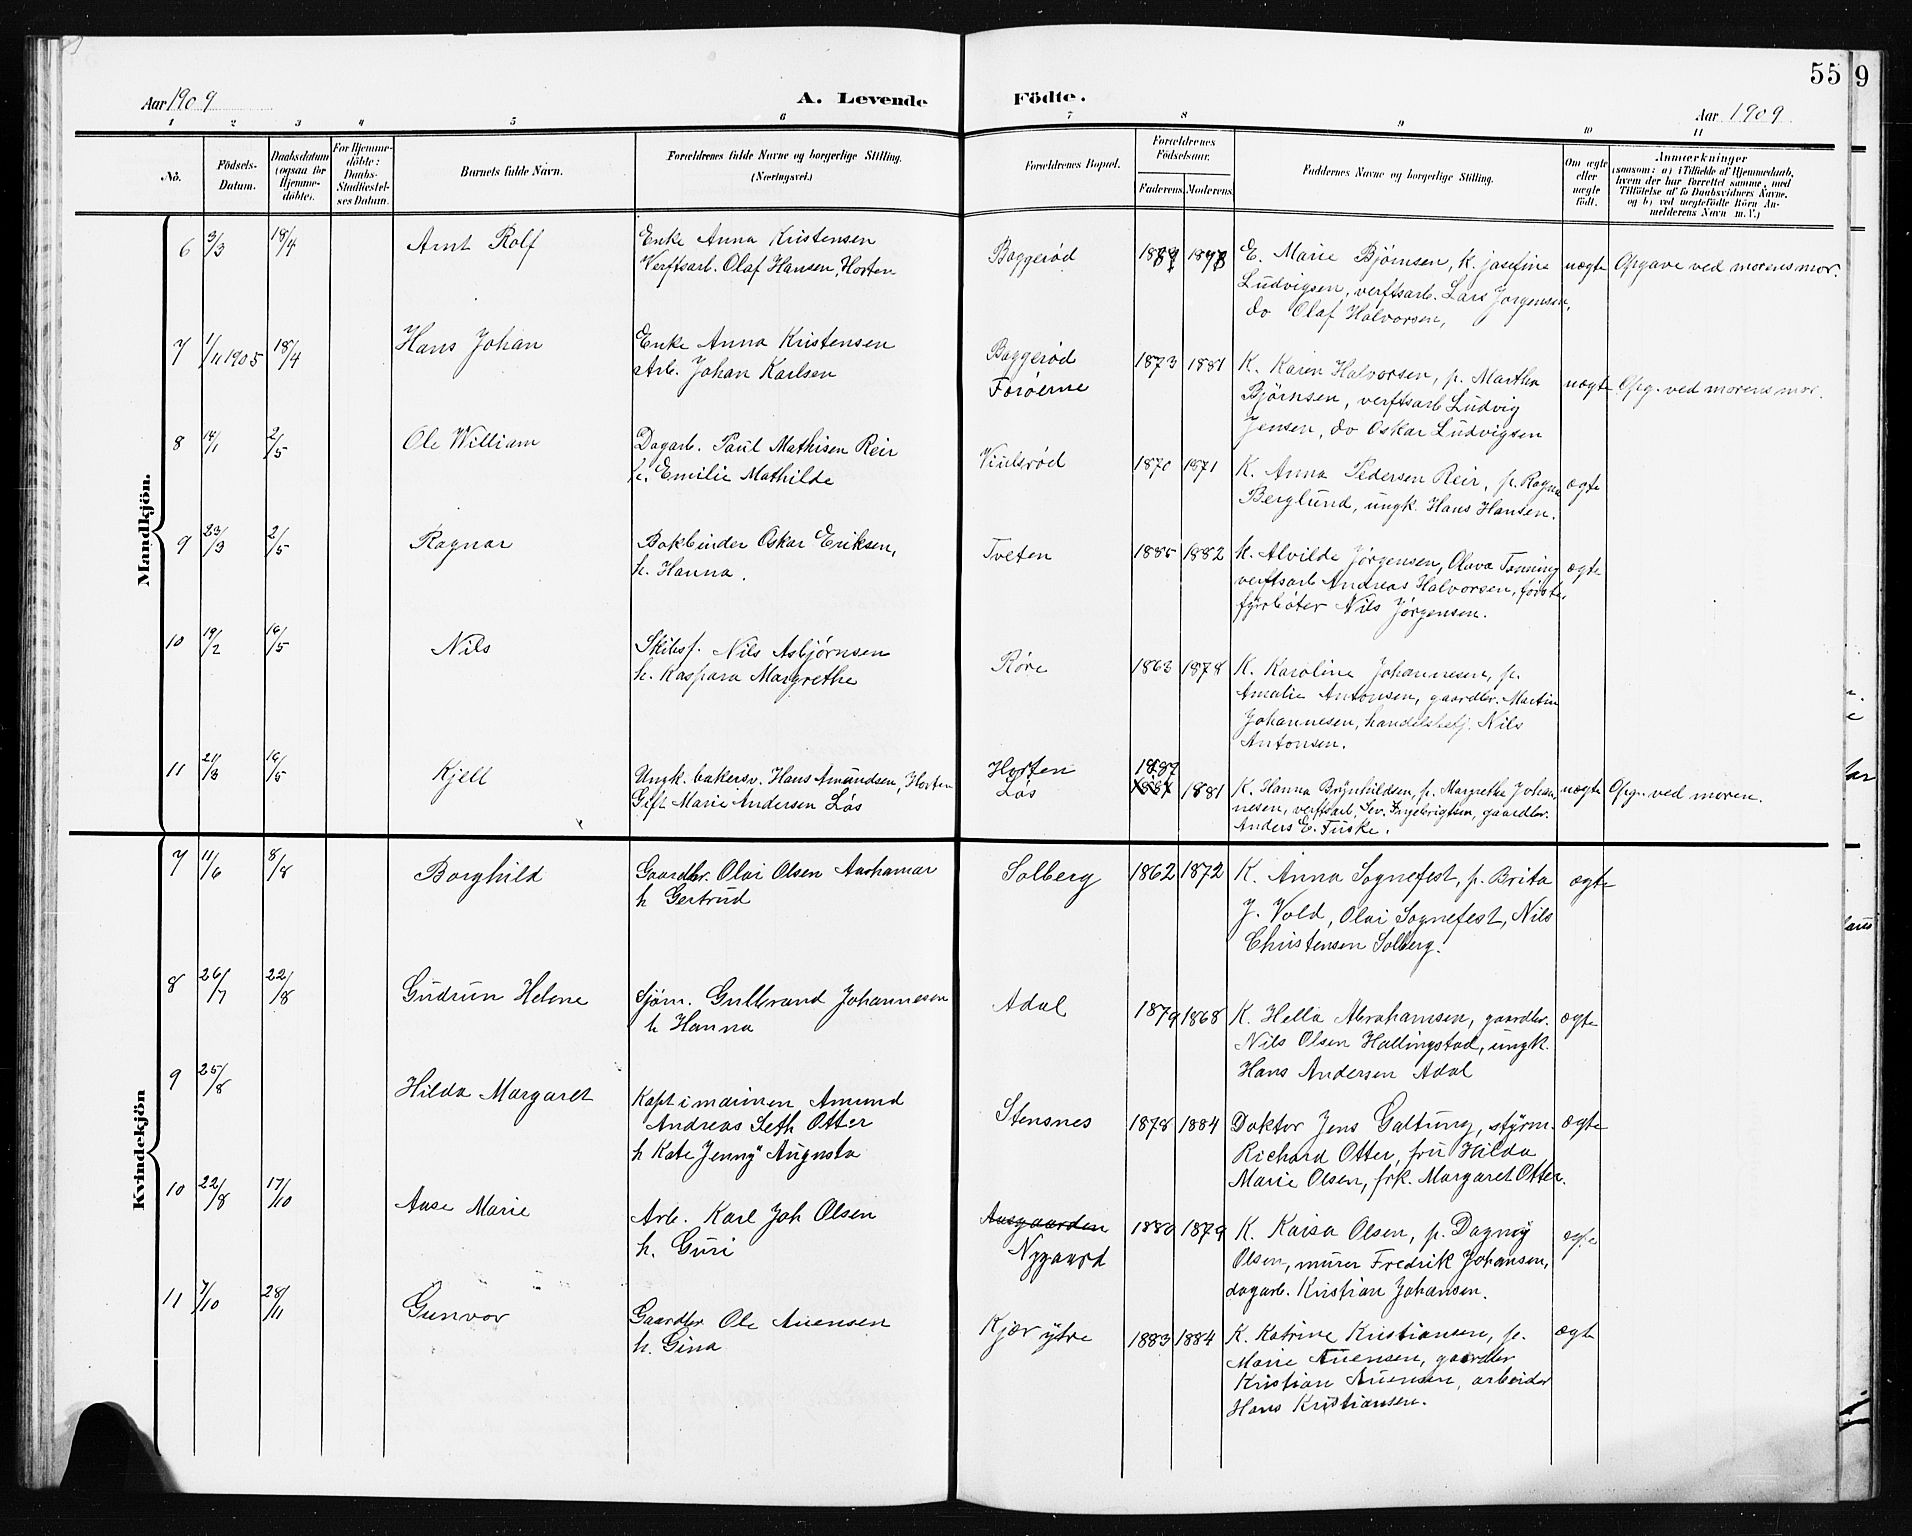 55
9
Aar 1909
A. Levende Födte.
Aar 1909
1 2 3 4 5 6 7 8 9 10 11
No.
Födsels-Datum.
Daabsdatum (ogsaa for Hjemme-döbte).
For Hjemme-döbte: Daabs-Stadfæstel-ses Datum.
Barnets fulde Navn.
Forældrenes fulde Navne og borgerlige Stilling. (Næringsvei.)
Forældrenes Bopæl.
Forældrenes Födselsaar.
Faderens Moderens
Faddernes Navne og borgerlige Stilling.
Om ægte eller uægte födt.
Anmærkninger
(saasom: a) i Tilfælde af Hjemmedaab,
hvem der har forrettet samme, med
Tilföielse af to Daabsvidners Navne,
og b) ved uægtefödte Börn An-
melderens Navn m. V.)
Mandkjön.
6 3/3 18/4 Arnt Rolf
Enke Anna Kristensen
Verftsarb. Olaf Hansen, Horten
Baggerød
E. Marie Bjørnsen, K. Josefine
Ludvigsen, verftsarb. Lars Jørgensen,
do Olaf Halvorsen,
uægte Opgave ved morens mor.
7 1/11 1905 18/4 Hans Johan
Enke Anna Kristensen
Arb. Johan Karlsen
Baggerød
Færøerne
1873 1881
K. Karen Halvorsen, p. Martha
Bjørnsen, verftsarb Ludvig
Jensen, do Oskar Ludvigsen
uægte Opg. ved morens mor.
8 14/1 2/5 Ole William
Dagarb. Paul Mathisen Reir
h. Emilie Mathilde
1870 1871
K. Anna Pedersen Reir, p. Ragna
Berglund, ungk. Hans Hansen.
ægte
9 23/3 2/5 Ragnar
Bokbinder Oskar Eriksen,
h. Hanna.
Tveten
1885 1882
K. Alvilde Jørgensen, Olava Tanning
verftsarb Andreas Halvorsen, første,
fyrbøter Nils Jørgensen.
ægte
10 19/2 16/5 Nils
Skibsf. Nils Asbjørnsen
h. Kaspara Margrethe
Røre
1863 1878
K. Karoline Johannesen, p.
Amalie Antonsen, gaardbr. Martin
Johannesen, handelsbetj. Nils
Antonsen.
11 21/3 16/5 Kjell
Ungk. bakersv. Hans Amundsen, Horten
Gift Marie Andersen Løs
Horten
Løs
1887
1881
K. Hanna Brynhildsen, p. Margrethe Johan-
nesen, verftsarb. Sev. Ingebrigtsen, gaardbr.
Anders E. Fuske.
uægte Opg. ved moren.
Kvindekjön
7 11/6 8/8 Borghild
Gaardbr. Olai Olsen Aarhamar
h Gertrud
Solberg
1862 1872
K. Anna Sognefest, p. Brita
J. Vold, Olai Sognefest, Nils
Christensen Solberg.
ægte
8 26/7 22/8 Gudrun Helene
Sjøm. Gulbrand Johannesen
h Hanna
Adal
1879 1868
K. Hella Abrahamsen, gaardbr.
Nils Olsen Hallingstad, ungk.
Hans Andersen Adal
ægte
9 25/8 Hilda Margaret
Kapt i marinen Amund
Andreas Seth Otter
h Kate "Jenny" Augusta
Stensnes
1878 1884
Doktor Jens Galtung, styrm.
Richard Otter, fru Hilda
Marie Olsen, frk. Margaret Otter.
ægte
10 22/8 17/10 Aase Marie
Arb. Karl Joh Olsen
h. Guri
Aasgaarden
Nygaard
1880 1879
K. Kaisa Olsen, p. Dagny
Olsen, murer Fredrik Johansen,
dagarb. Kristian Johansen.
ægte
11 7/10 28/11 Gunvor
Gaardbr Ole Auensen
h. Gina
Kjær ytre
1883 1884
K. Katrine Kristiansen, p.
Marie Auensen, gaardbr
Kristian Auensen, arbeider
Hans Kristiansen.
ægte